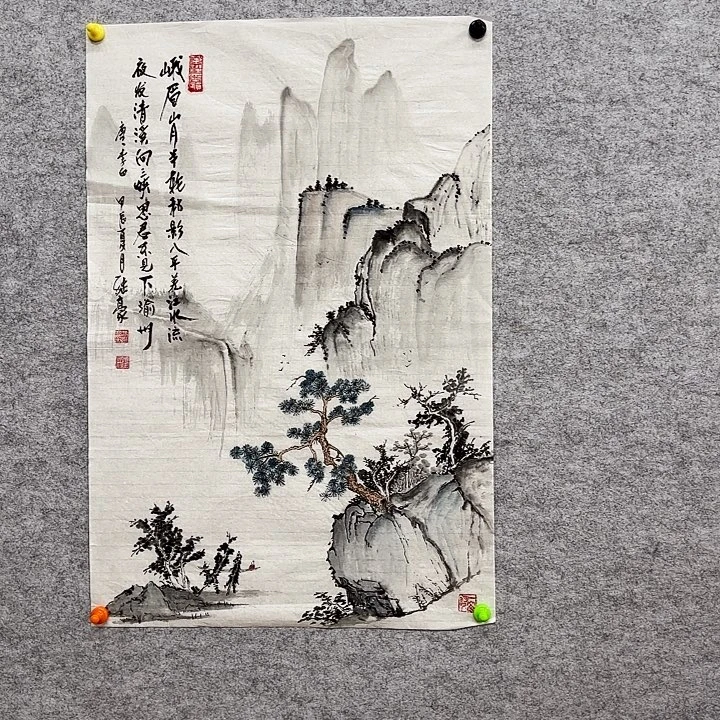 峨眉山月半輪秋影入平羌江水流
夜发清溪向三峡思君不见下渝州
唐李白 甲辰夏月